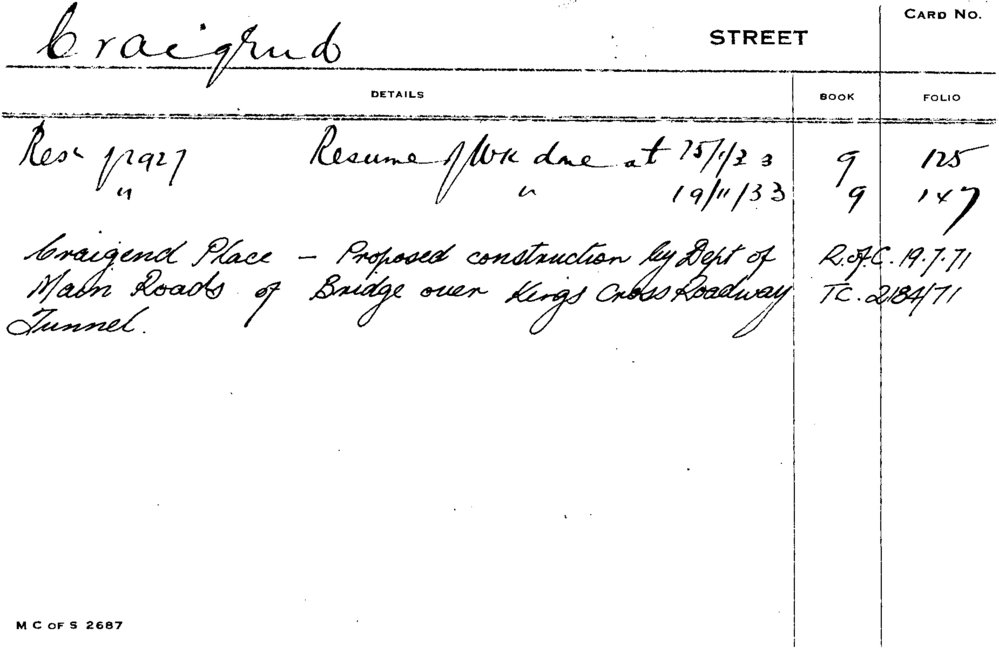 CARD NO.
Craigend STREET
DETAILS BOOK FOLIO
Resn 1927 Resume of Wk done at 25/1/33 9 125
" " 19/11/33 9 147
Craigend Place – Proposed construction by Dept of R.of.C. 19.7.71
Main Roads of Bridge over Kings Cross Roadway TC. 2184/71
Tunnel.
M C OF S 2687